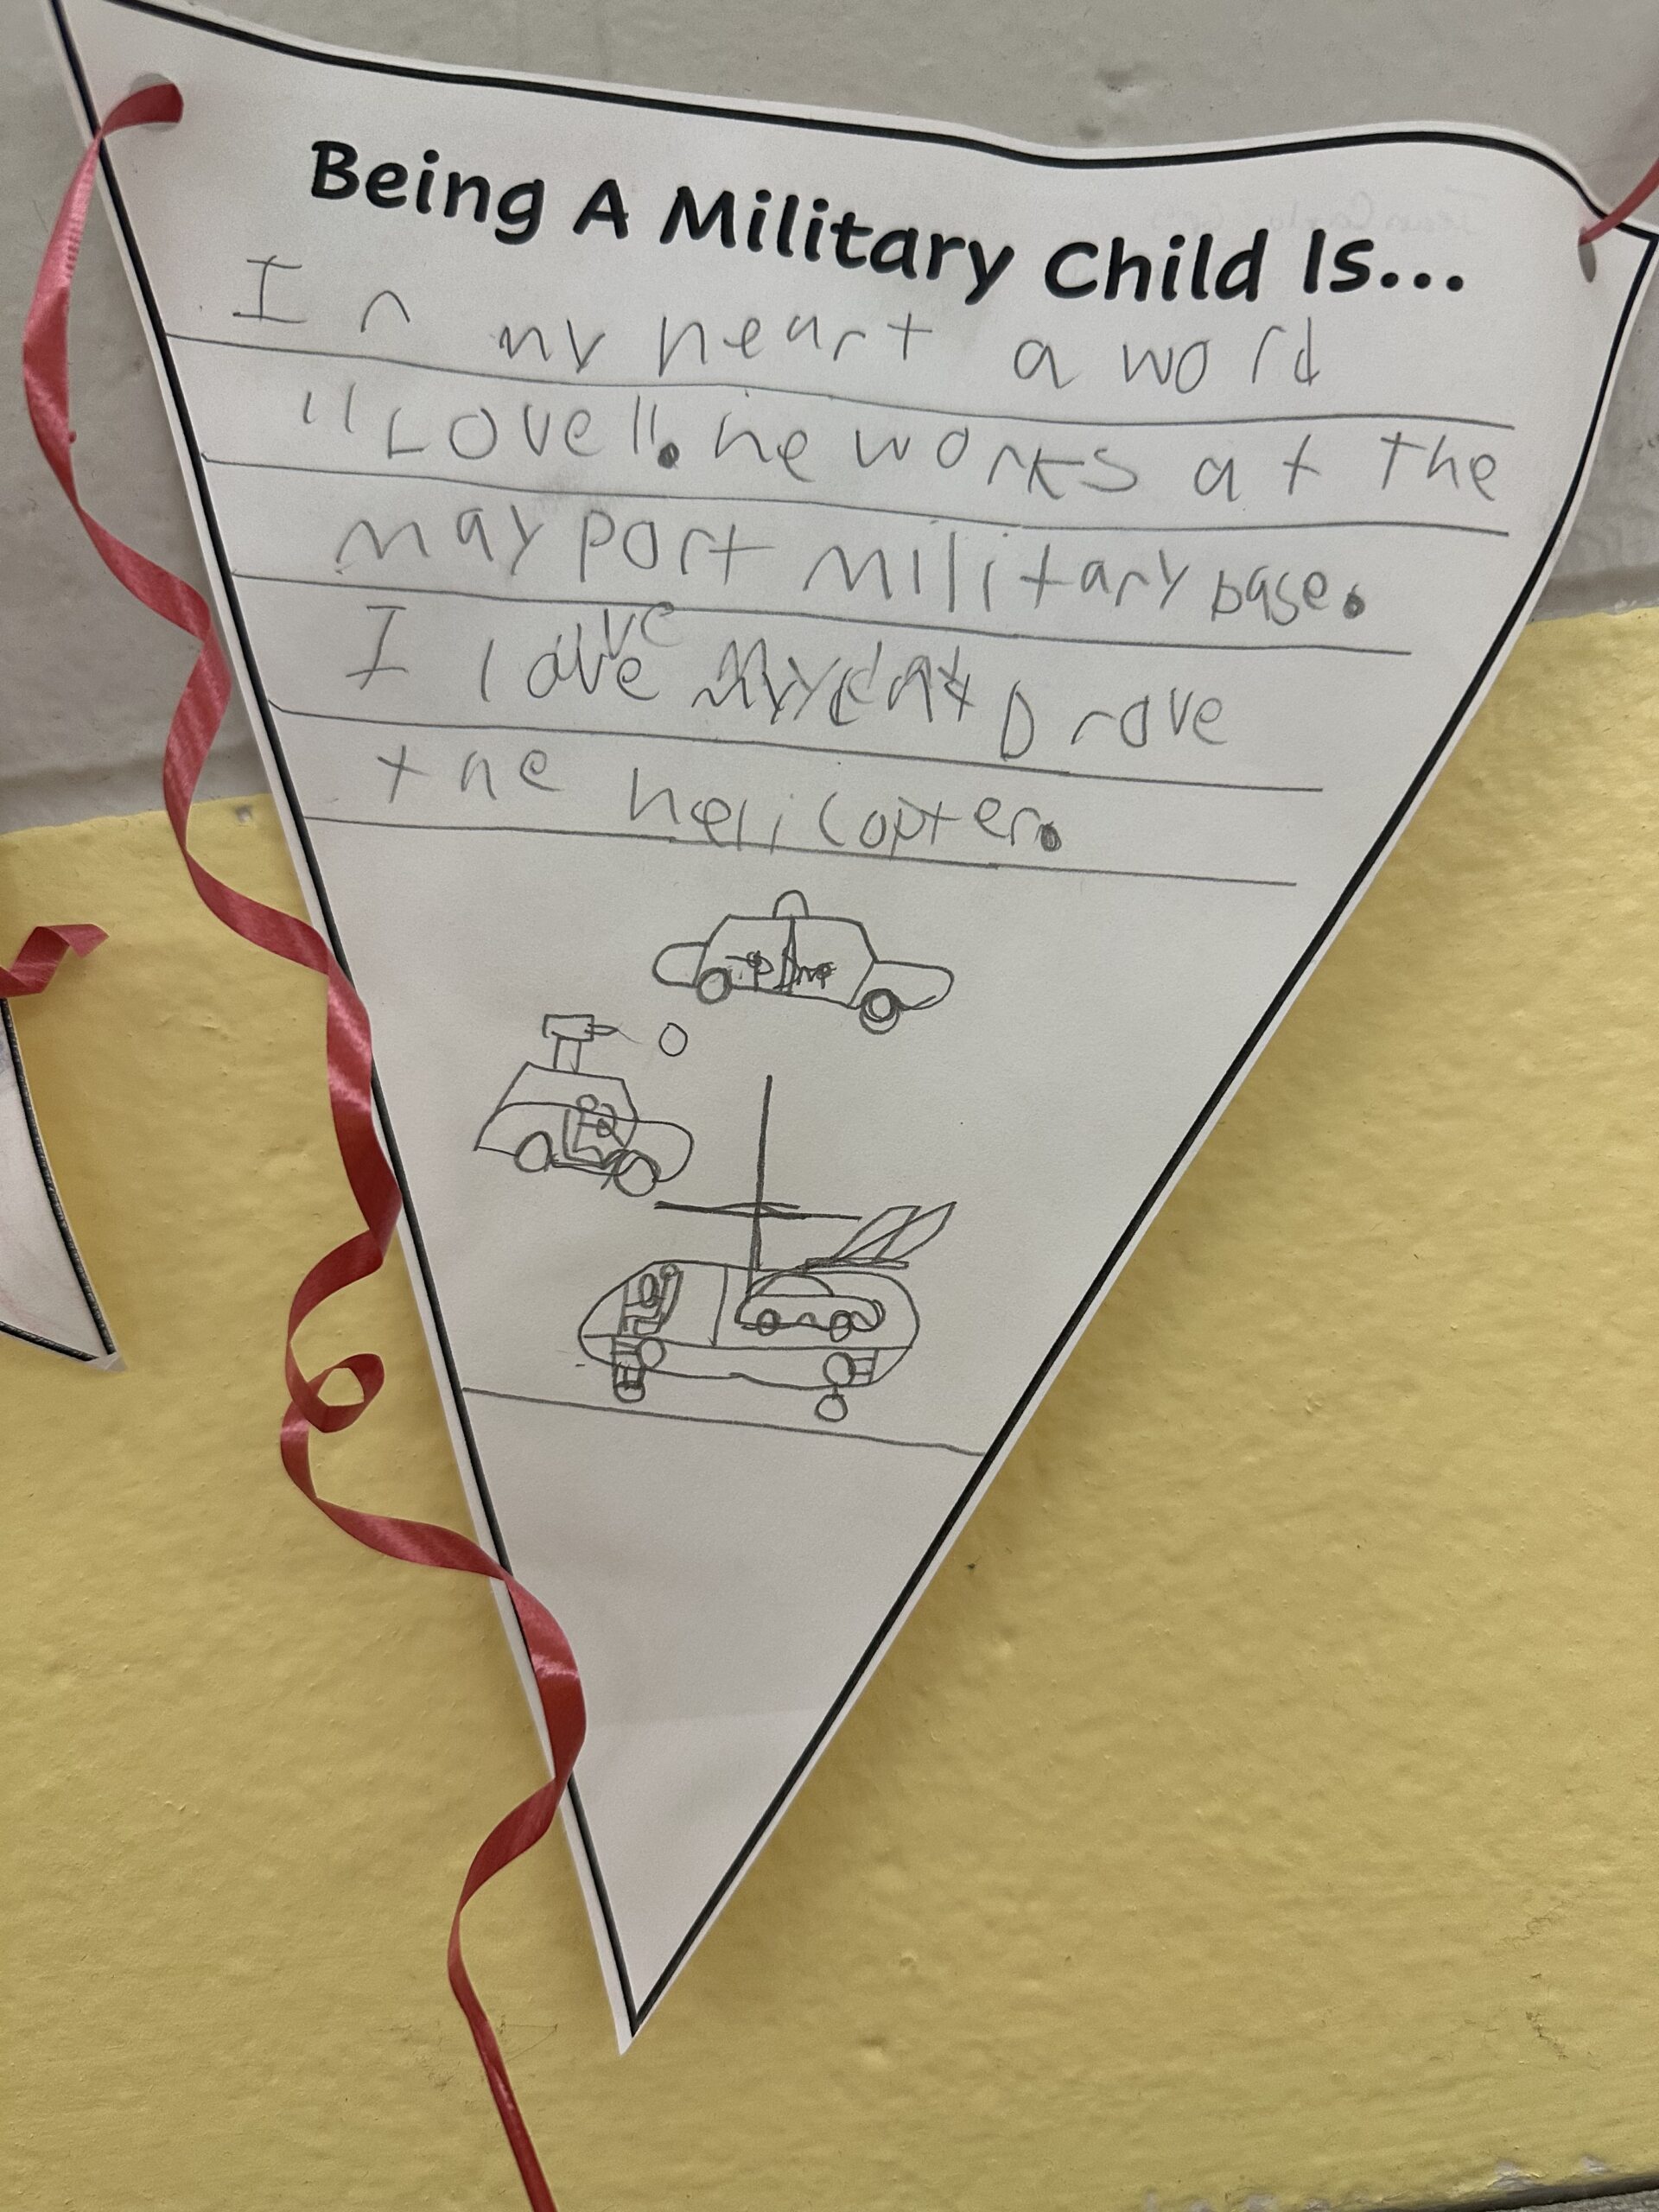 Being A Military Child Is...
In my heart a word
"Love". he works at the
may port military base.
I love Drove
the helicopter.